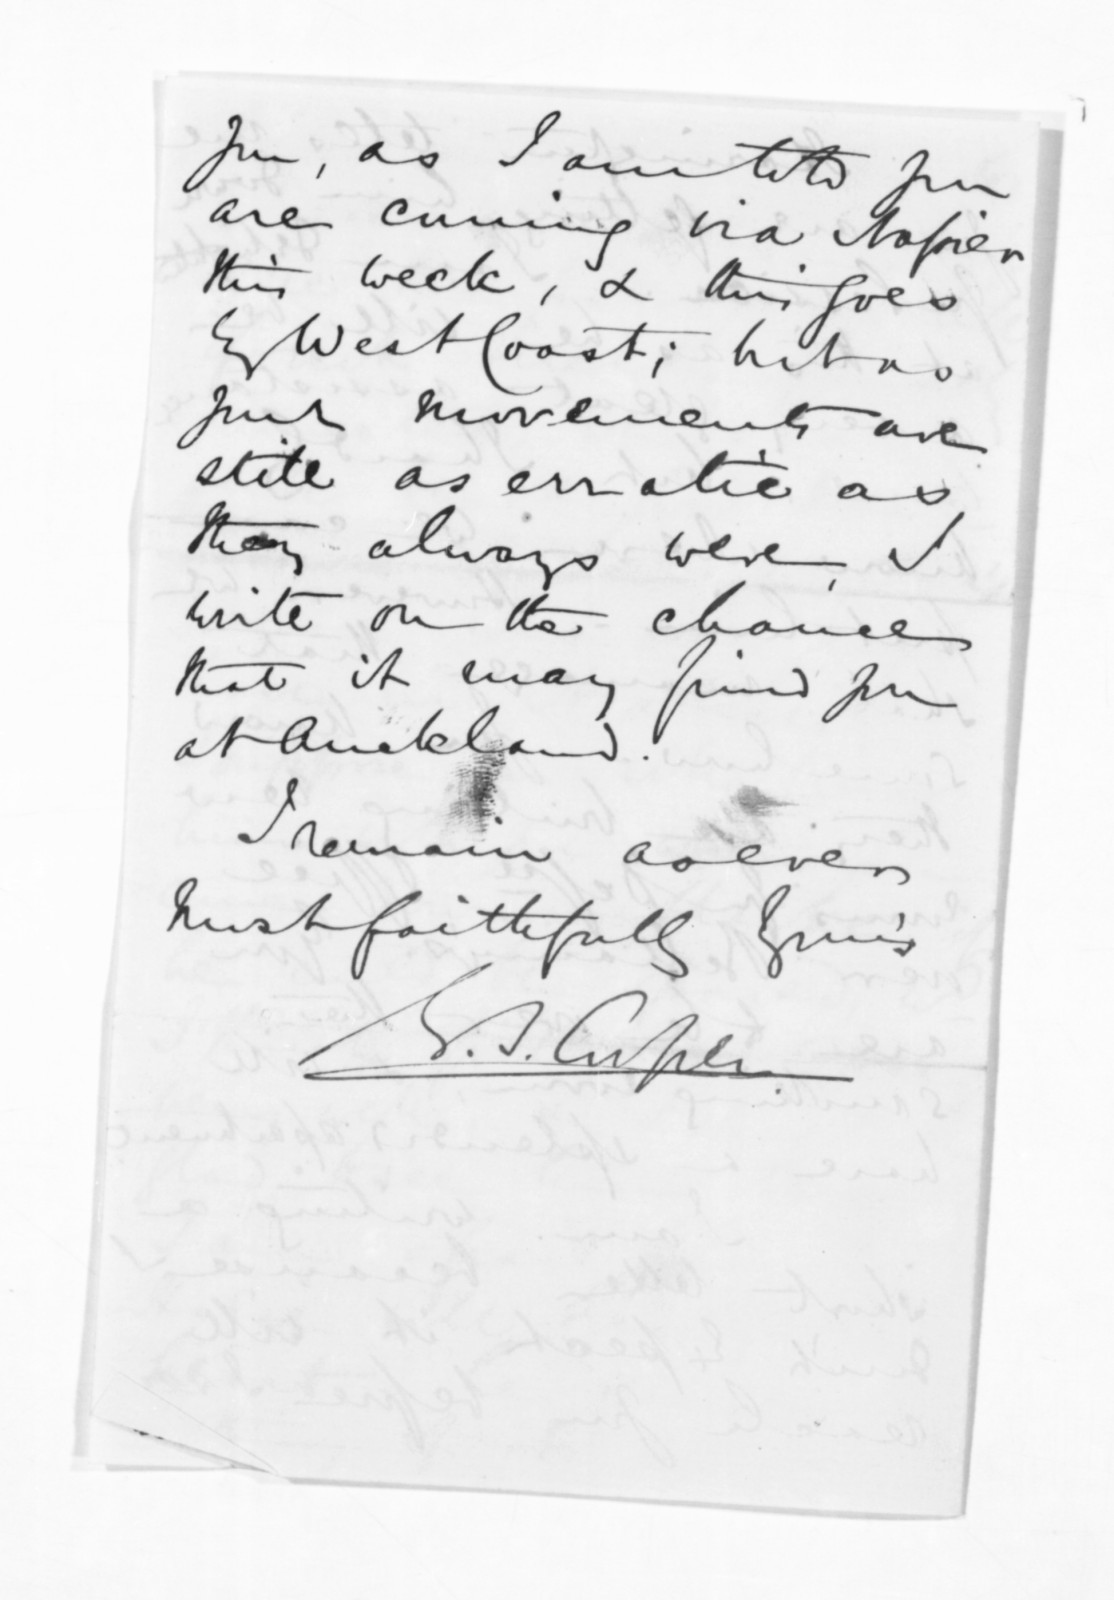 you, as I am told you
are coming via Napier
this week, & this goes
by West Coast; but as
your movements are
still as erratic as
they always were, I
write on the chance
that it may find you
at Auckland.
I remain as ever
most faithfully Yours
G. S. Cooper